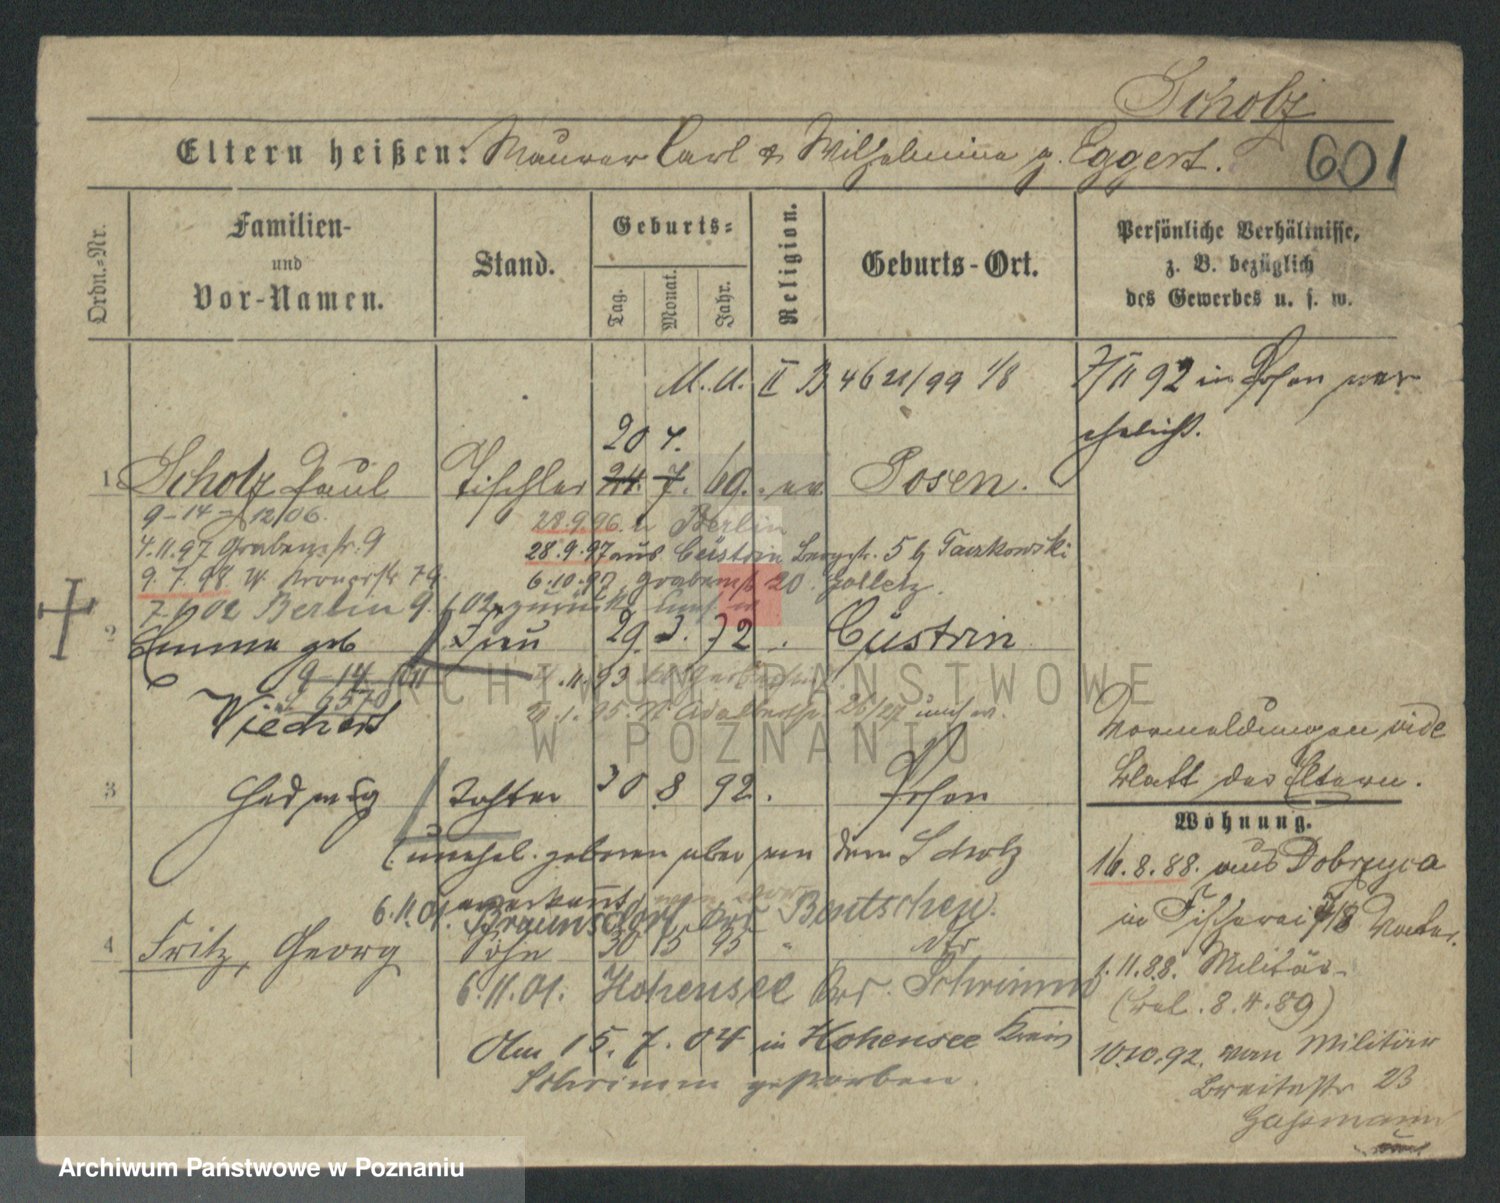 Scholz
Eltern heißen: Maurer Carl & Wilhelmine g. Eggert. 601
Ordn.-Nr.
Familien-
und
Vor-Namen.
Stand.
Geburts-
Tag.
Monat.
Jahr.
Religion.
Geburts-Ort.
Persönliche Verhältnisse,
z. B. bezüglich
des Gewerbes u. s. w.
M. U. II B 46 21/99 1/8
7/II 92 in Posen ver
ehelicht.
20 4.
1 Scholz Paul Tischler 24. 7. 69. ev. Posen.
9-14 12/06.
28.9.96. Berlin
4.11.97 Grabenstr. 9
28.9.97 aus Cüstrin Bergstr. 5 b Taczkowski
9.7.98 W. Kronerstr
6.10.97 Grabenstr 20
7.6.02 Berlin 9. 6 02 zurück
2 Emma geb Frau 29. 3. 72 Cüstrin
9 14
Wiechert
11.93
1.95. Adalbertstr. 26/27
Vormeldungen vide
Blatt der Eltern.
3 Hedwig Tochter 30 8 92. Posen
Wohnung.
(unehel. geboren aber von dem Scholz
anerkannt
16.8.88. aus Dobrzyca
in Fischerei 7/8 Vater.
6.11.01. Braunsdorf Krs Bentschen.
4 Fritz, Georg Sohn 30 5 95 " dto
1.11.88. Militär
6.11.01. Hohensee Krs. Schrimm
8.4.89)
Am 15.7.04 in Hohensee Kreis
Schrimm gestorben.
10.10.92. vom Militär
Breitestr 23
Gassmann
ARCHIWUM PAŃSTWOWE
W POZNANIU
Archiwum Państwowe w Poznaniu